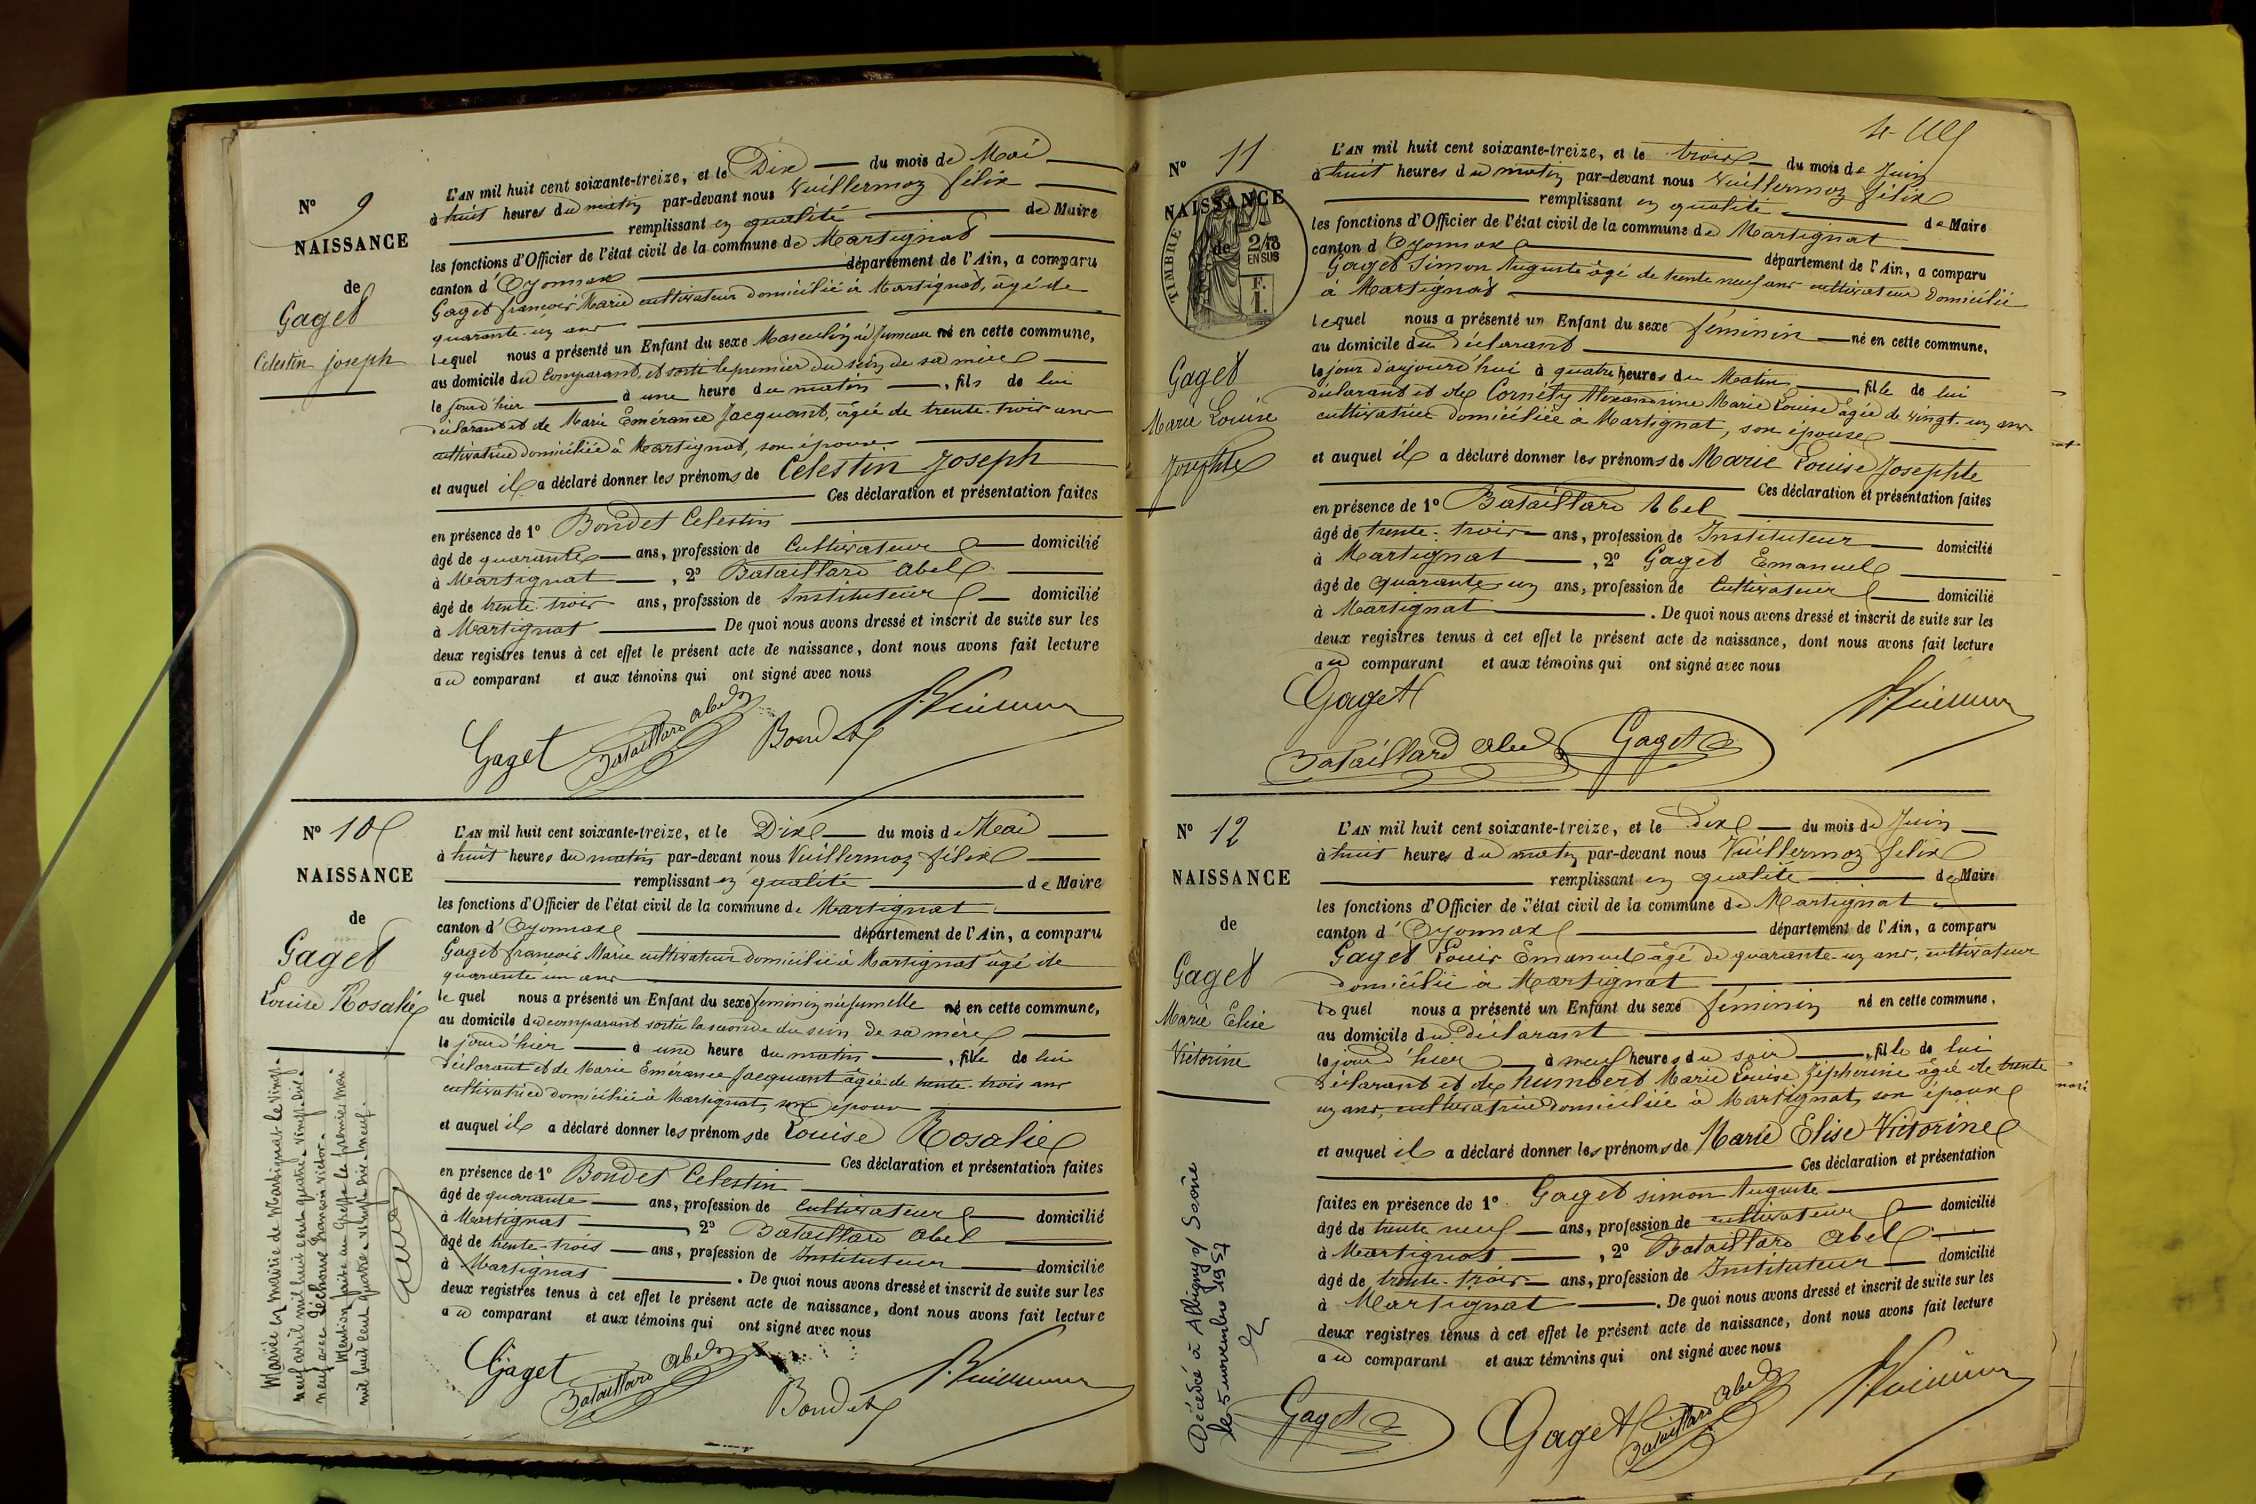 N° 9
NAISSANCE
de
Gaget
Celestin Joseph
L'AN mil huit cent soixante-treize, et le Dix du mois de Mai
à huit heures du matin par-devant nous Vuillermoz félix
remplissant en qualité de Maire
les fonctions d'Officier de l'état civil de la commune de Martignat
canton d'Oyonnax département de l'Ain, a comparu
Gaget françois Marie cultivateur domicilié à Martignat, âgé de
quarante-un ans
lequel nous a présenté un Enfant du sexe Masculin né jumeau né en cette commune,
au domicile du Comparant, et sorti le premier du sein de sa mère
le jour d'hier à une heure du matin, fils de lui
déclarant et de Marie Emérance Jacquant, âgée de trente-trois ans
cultivatrice domiciliée à Martignat, son épouse
et auquel il a déclaré donner les prénoms de Celestin Joseph
Ces déclaration et présentation faites
en présence de 1° Bondet Celestin
âgé de quarante ans, profession de Cultivateur domicilié
à Martignat, 2° Bataillard Abel
âgé de trente-trois ans, profession de Instituteur domicilié
à Martignat De quoi nous avons dressé et inscrit de suite sur les
deux registres tenus à cet effet le présent acte de naissance, dont nous avons fait lecture
au comparant et aux témoins qui ont signé avec nous
Gaget Bataillard Abel Bondet
N° 10
NAISSANCE
de
Gaget
Louise Rosalie
Mariée en mairie de Martignat le vingt-
neuf avril mil huit cent quatre-vingt-dix-
neuf avec François Victor.
Mention faite au Greffe le premier mai
mil huit cent quatre-vingt-dix-neuf.
L'AN mil huit cent soixante-treize, et le Dix du mois de Mai
à huit heures du matin par-devant nous Vuillermoz félix
remplissant en qualité de Maire
les fonctions d'Officier de l'état civil de la commune de Martignat
canton d'Oyonnax département de l'Ain, a comparu
Gaget françois Marie cultivateur domicilié à Martignat âgé de
quarante un ans
le quel nous a présenté un Enfant du sexe féminin née jumelle né en cette commune,
au domicile du comparant sortie la seconde du sein de sa mère
le jour d'hier à une heure du matin, fille de lui
déclarant et de Marie Emérance Jacquant âgée de trente-trois ans
cultivatrice domiciliée à Martignat, son épouse
et auquel il a déclaré donner les prénoms de Louise Rosalie
Ces déclaration et présentation faites
en présence de 1° Bondet Celestin
âgé de quarante ans, profession de Cultivateur domicilié
à Martignat 2° Bataillard Abel
âgé de trente-trois ans, profession de Instituteur domicilié
à Martignat. De quoi nous avons dressé et inscrit de suite sur les
deux registres tenus à cet effet le présent acte de naissance, dont nous avons fait lecture
au comparant et aux témoins qui ont signé avec nous
Gaget Bataillard Abel Bondet
N° 11
NAISSANCE
de
TIMBRE
2/10
EN SUS
F.
1.
Gaget
Marie Louise
Josephte
L'AN mil huit cent soixante-treize, et le trois du mois de Juin
à huit heures du matin par-devant nous Vuillermoz félix
remplissant en qualité de Maire
les fonctions d'Officier de l'état civil de la commune de Martignat
canton d'Oyonnax département de l'Ain, a comparu
Gaget Simon Auguste âgé de trente neuf ans cultivateur domicilié
à Martignat
lequel nous a présenté un Enfant du sexe féminin né en cette commune,
au domicile du déclarant
le jour d'aujourd'hui à quatre heures du Matin fille de lui
déclarant et de Cornéty Alexandrine Marie Louise âgée de vingt-un ans
cultivatrice domiciliée à Martignat, son épouse
et auquel il a déclaré donner les prénoms de Marie Louise Josephte
Ces déclaration et présentation faites
en présence de 1° Bataillard Abel
âgé de trente-trois ans, profession de Instituteur domicilié
à Martignat, 2° Gaget Emanuel
âgé de quarante-un ans, profession de Cultivateur domicilié
à Martignat. De quoi nous avons dressé et inscrit de suite sur les
deux registres tenus à cet effet le présent acte de naissance, dont nous avons fait lecture
au comparant et aux témoins qui ont signé avec nous
Gaget
Bataillard Abel Gaget
N° 12
NAISSANCE
de
Gaget
Marie Elise
Victorine
Décédé à Albigny s/ Saône
le 5 novembre 1957
L'AN mil huit cent soixante-treize, et le Dix du mois de Juin
à huit heures du matin par-devant nous Vuillermoz félix
remplissant en qualité de Maire
les fonctions d'Officier de l'état civil de la commune de Martignat
canton d'Oyonnax département de l'Ain, a comparu
Gaget Louis Emanuel âgé de quarante-un ans, cultivateur
domicilié à Martignat
lequel nous a présenté un Enfant du sexe féminin né en cette commune,
au domicile du déclarant
le jour d'hier à neuf heures du soir, fille de lui
déclarant et de humbert Marie Louise Zéphirine âgée de trente
un ans, cultivatrice domiciliée à Martignat, son épouse
et auquel il a déclaré donner les prénoms de Marie Elise Victorine
Ces déclaration et présentation
faites en présence de 1° Gaget simon Auguste
âgé de trente neuf ans, profession de cultivateur domicilié
à Martignat, 2° Bataillard Abel
âgé de trente-trois ans, profession de Instituteur domicilié
à Martignat. De quoi nous avons dressé et inscrit de suite sur les
deux registres tenus à cet effet le présent acte de naissance, dont nous avons fait lecture
au comparant et aux témoins qui ont signé avec nous
Gaget Gaget Bataillard Abel